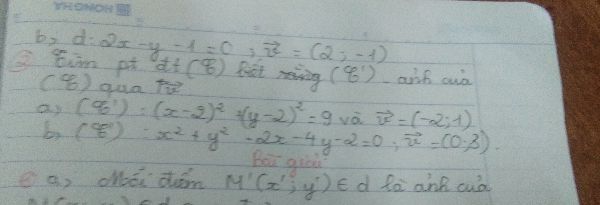 HONG HA
b, d: 2x - y - 1 = 0 ; v⃗ = (2; -1)
② Tìm pt đt (C) biết rằng (C') ảnh của
(C) qua Tv⃗
a, (C') : (x-2)² + (y-2)² = 9 và v⃗ = (-2; 1)
b, (C') : x² + y² - 2x - 4y - 2 = 0 ; v⃗ = (0; 3).
Bài giải
a, Mỗi điểm M'(x'; y') ∈ d là ảnh của